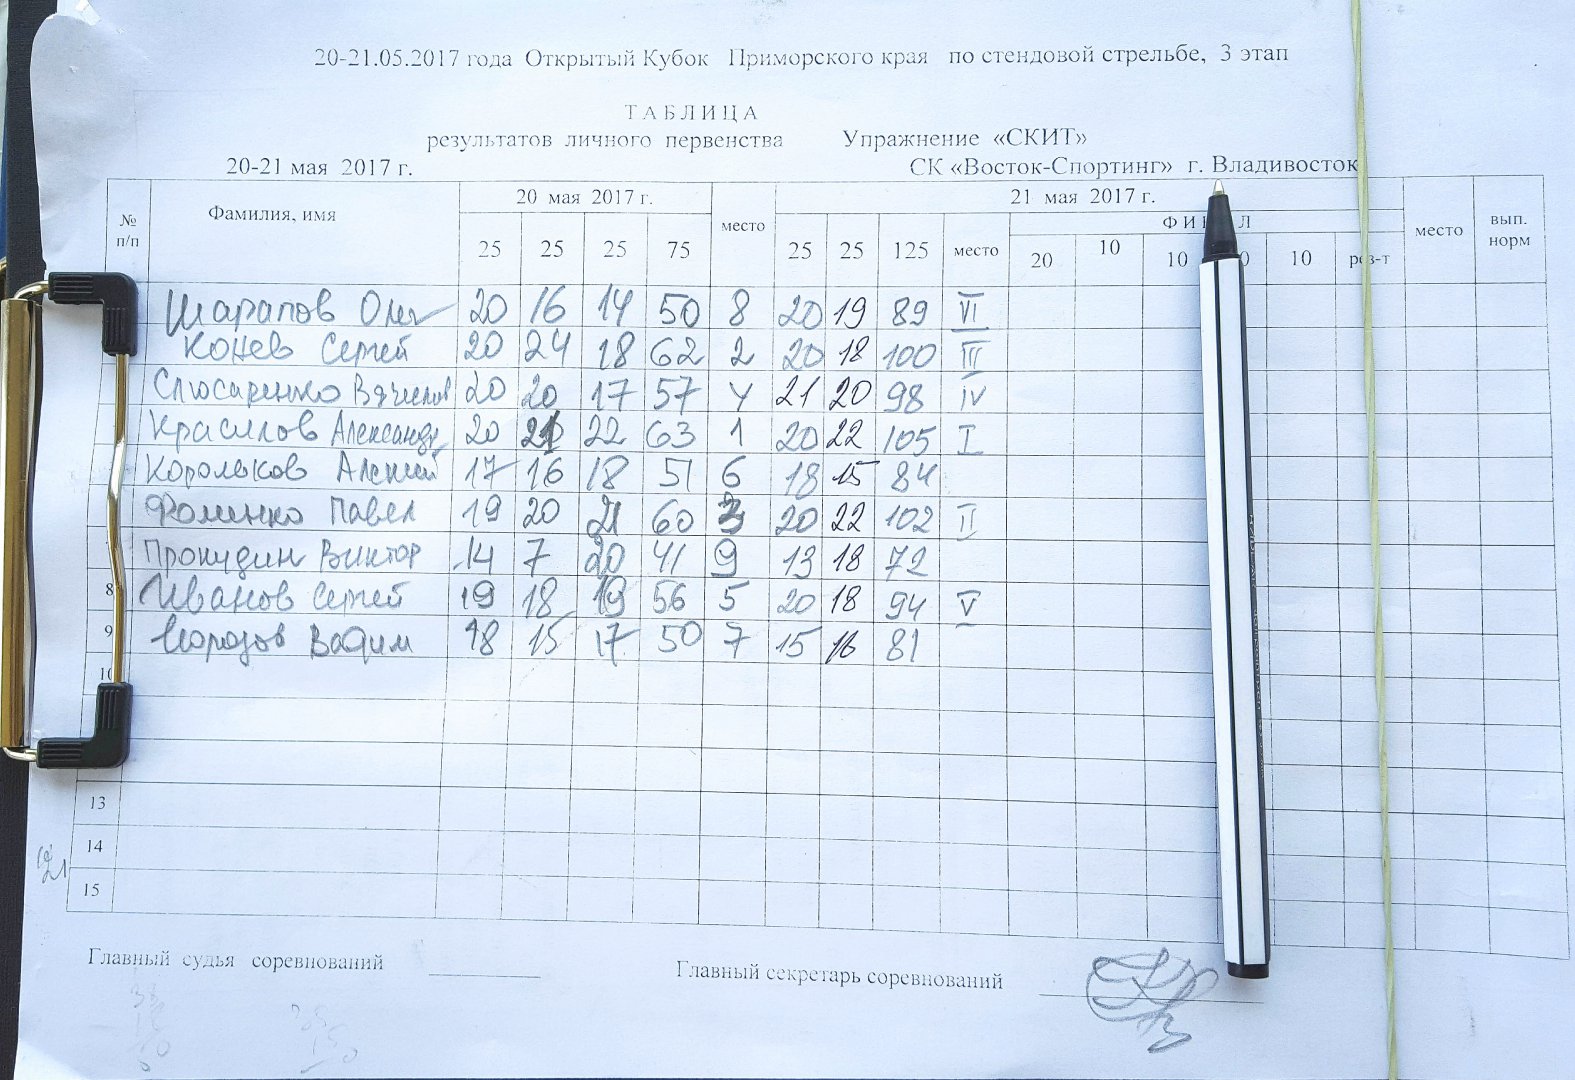 20-21.05.2017 года Открытый Кубок Приморского края по стендовой стрельбе, 3 этап
ТАБЛИЦА
результатов личного первенства Упражнение «СКИТ»
20-21 мая 2017 г. СК «Восток-Спортинг» г. Владивосток
№ п/п Фамилия, имя 20 мая 2017 г. место 21 мая 2017 г. место вып. норм
25 25 25 75 25 25 125 место 20 10 10 10
Шарапов Олег 20 16 14 50 8 20 19 89 VI
Конев Сергей 20 24 18 62 2 20 18 100 III
Слюсаренко Вячеслав 20 20 17 57 4 21 20 98 IV
Красилов Александр 20 21 22 63 1 20 22 105 I
Корольков Алексей 17 16 18 51 6 18 15 84
Фоменко Павел 19 20 21 60 3 20 22 102 II
Прокудин Виктор 14 7 20 41 9 13 18 72
8 Иванов Сергей 19 18 19 56 5 20 18 94 V
9 Морозов Вадим 18 15 17 50 7 15 16 81
10
13
14
15
Главный судья соревнований Главный секретарь соревнований